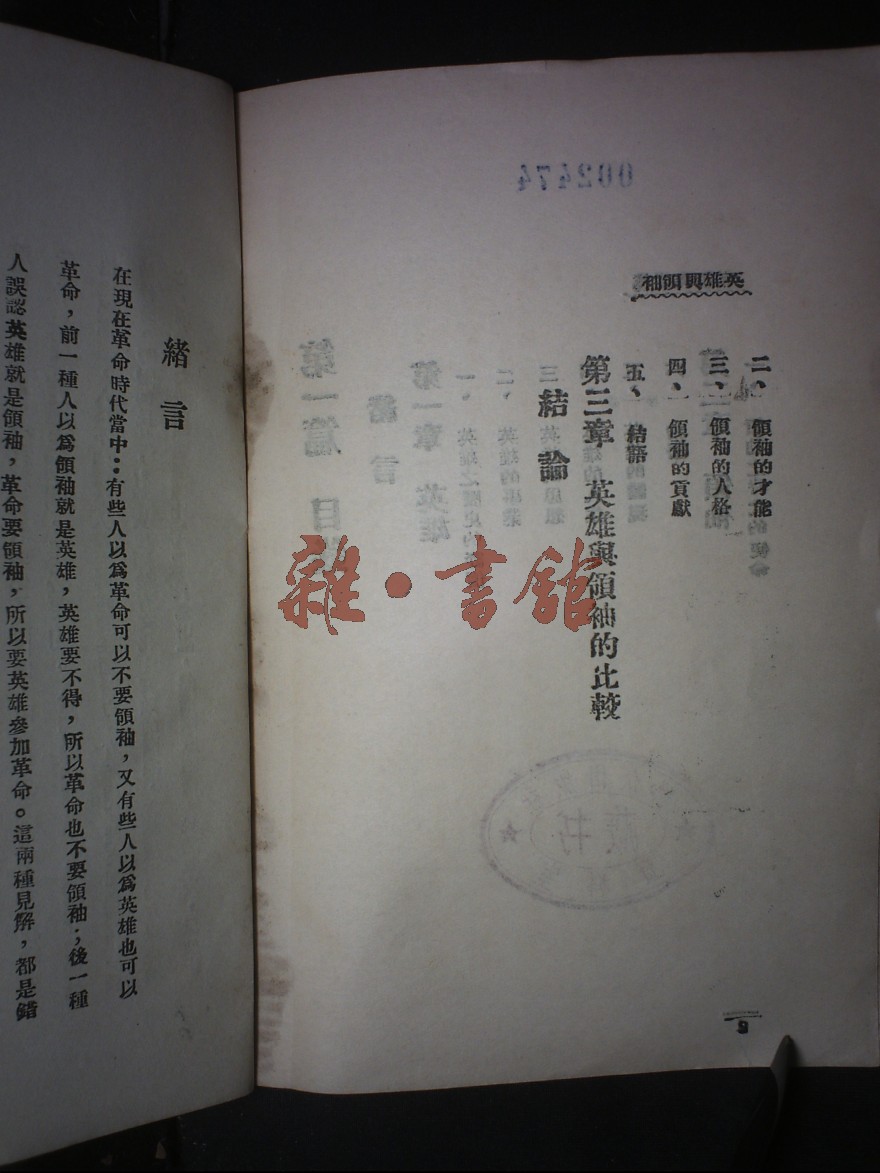 002474
英雄與領袖
二、領袖的才能
三、領袖的人格
四、領袖的貢獻
五、結語
第三章 英雄與領袖的比較
結論
緒言
在現在革命時代當中：有些人以爲革命可以不要領袖，又有些人以爲英雄也可以
革命，前一種人以爲領袖就是英雄，英雄要不得，所以革命也不要領袖；後一種
人誤認英雄就是領袖，革命要領袖，所以要英雄參加革命。這兩種見解，都是錯
雜·書館